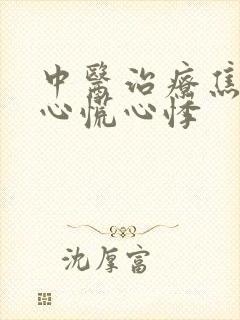 中醫治療焦
心慌心悸
沈厚富